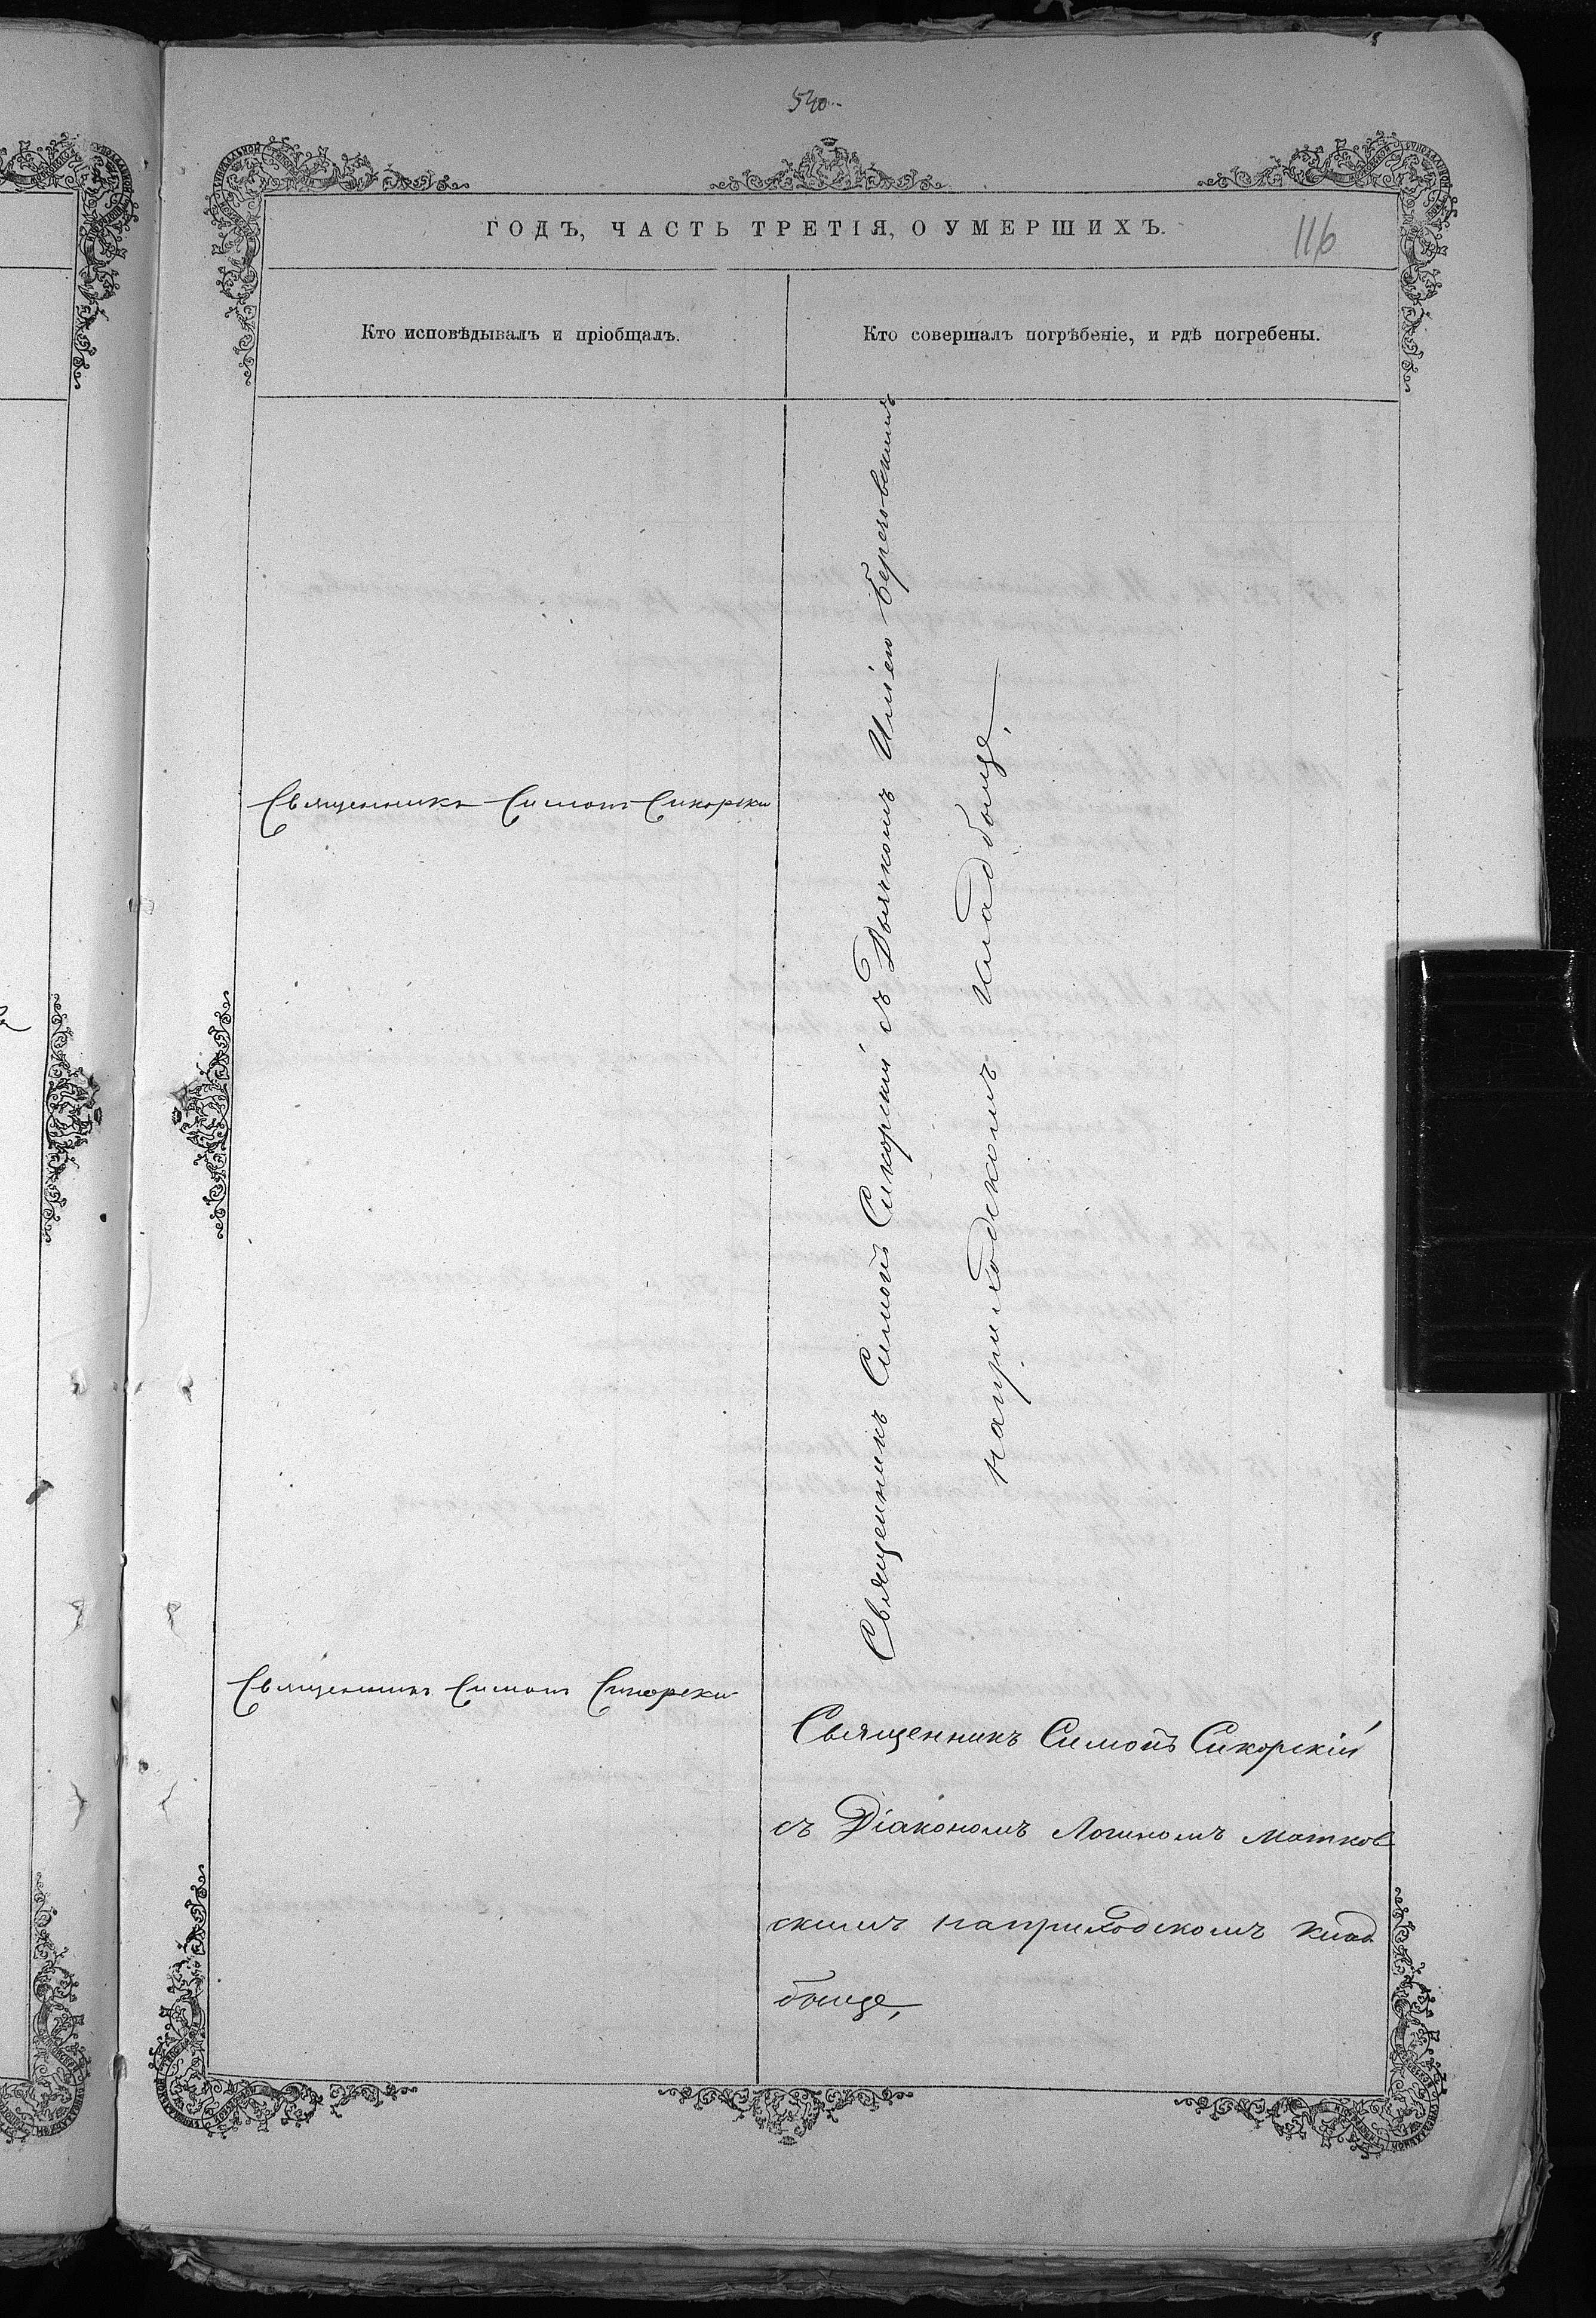 540
ГОДЪ, ЧАСТЬ ТРЕТІЯ, О УМЕРШИХЪ.
116
Кто исповѣдывалъ и пріобщалъ.
Кто совершалъ погрѣбеніе, и гдѣ погребены.
Священникъ Симонъ Сикорски
Священникъ Симонъ Сикорски
Священникъ Симонъ Сикорскій съ Дьячкомъ Иліею Береговскимъ
наприходскомъ кладбище,
Священникъ Симонъ Сикорскій
съ Діакономъ Логиномъ Матков
скимъ наприходскомъ клад
бище,